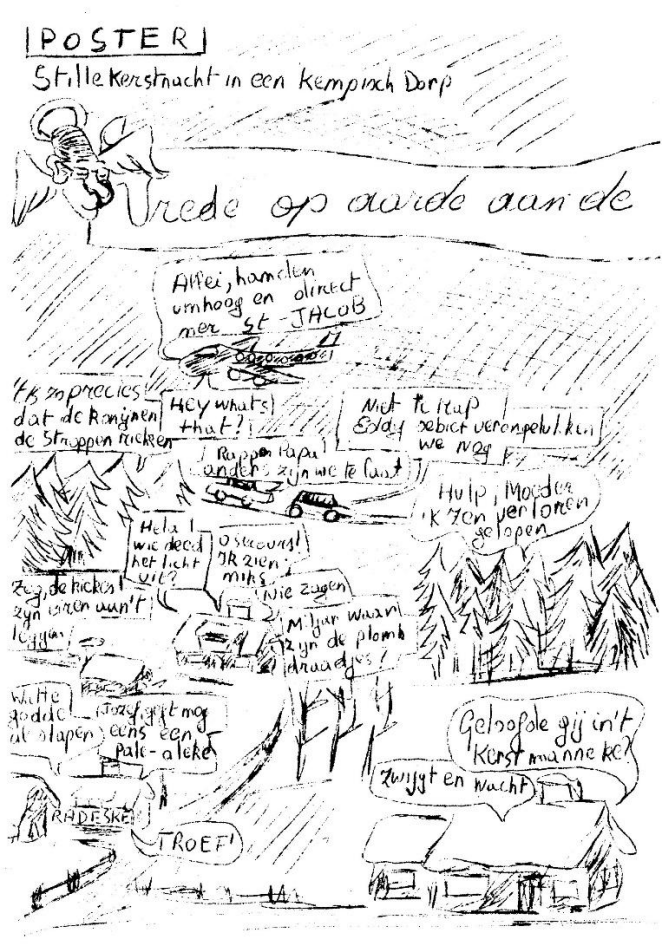 POSTER
Stille Kerstnacht in een Kempisch Dorp
Vrede op aarde aan de
Allei, hamelen
umhoog en direct
mer St JACOB
't Is zo precies
dat de konijnen
de stroppen rieken
Hey what's
that?
Niet te rap
Eddy sebiet verongelukken
we nog
Rapper Papa!
anders zijn we te laat
Hulp, Moeder
'k Zen verloren
gelopen
Hela!
wie deed
het licht
uit?
O secours!
Ik zien
niks
Nie zagen
Zeg, de kiekes
zijn iren aan't
leggen
Miljar waar
zijn de plomb
draadjes!
Watte
godde
al slapen
Jozef, geft mog
eens een
pale-aleke
RADESKE
TROEF!
Geloofde gij in't
Kerstmanneke?
Zwijgt en wacht